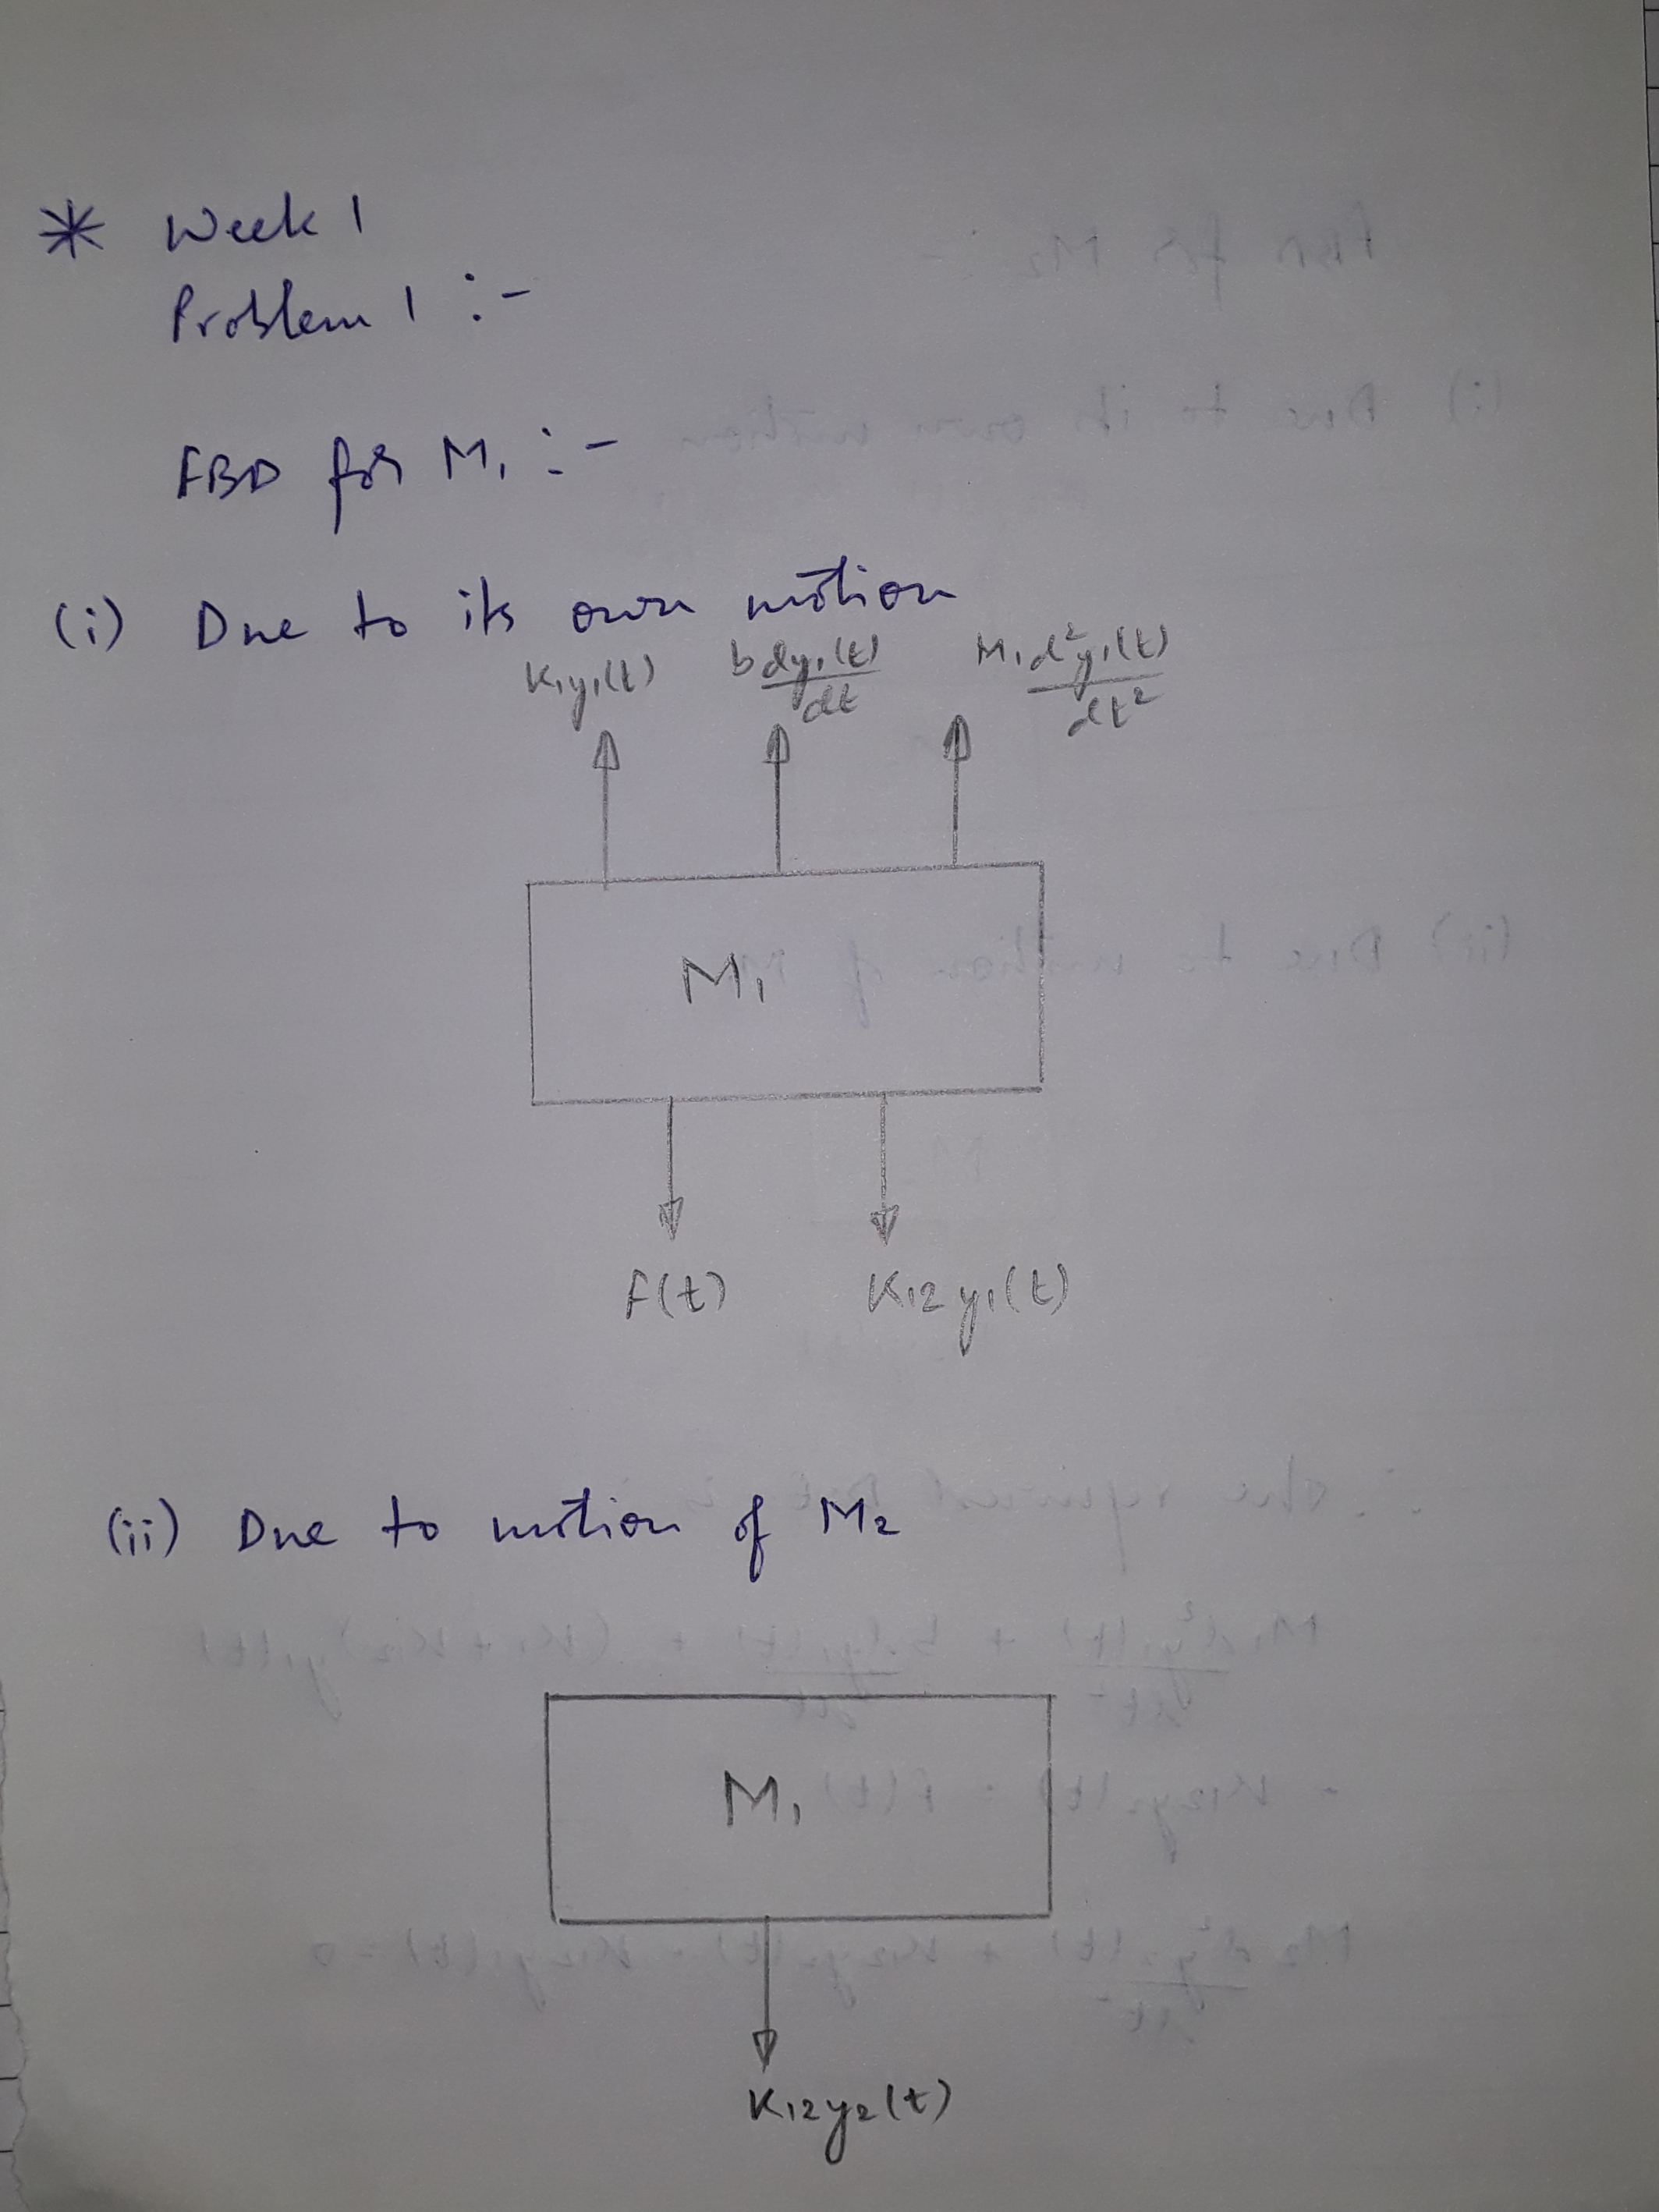 * Week 1
Problem 1 :-
FBD for M₁ :-
(i) Due to its own motion
K₁y₁(t) b dy₁(t)/dt M₁d²y₁(t)/dt²
M₁
F(t) K₁₂y₁(t)
(ii) Due to motion of M₂
M₁
K₁₂y₂(t)